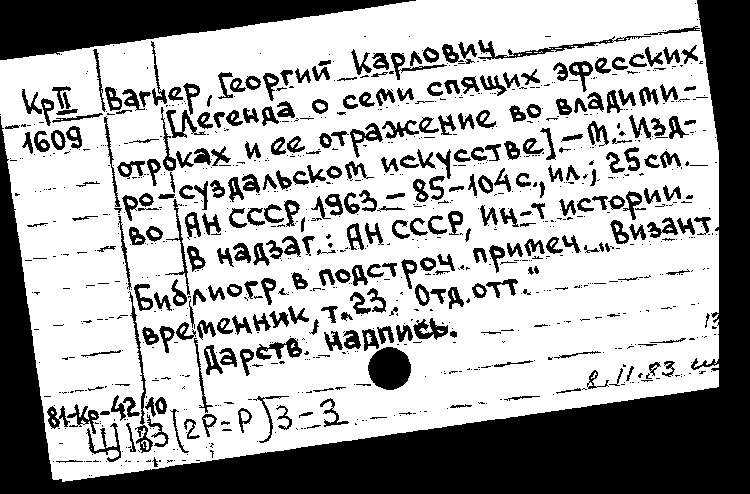 КрII Вагнер, Георгий Карлович.
1609 [Легенда о семи спящих эфесских
отроках и ее отражение во владими-
ро-суздальском искусстве].—М.: Изд-
во АН СССР, 1963.—85-104 с., ил.; 25 см.
В надзаг.: АН СССР, Ин-т истории.
Библиогр. в подстроч. примеч. „Визант.
временник, т. 23. Отд. отт.“
Дарств. надпись.
13
8.11.83
81-Кр-42/10
Щ133(2Р=Р)3-3